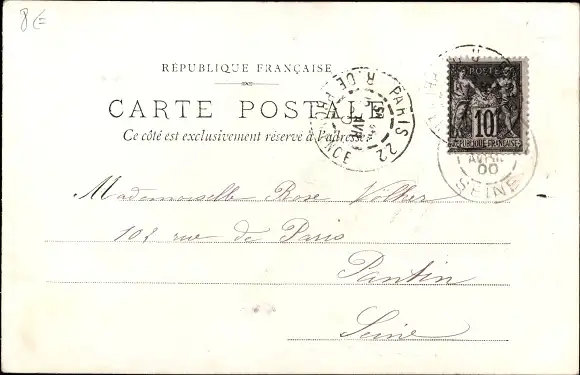 8€
RÉPUBLIQUE FRANÇAISE
CARTE POSTALE
Ce côté est exclusivement réservé à l'adresse
PARIS 22
R. DE PROVENCE
AVR
POSTES
10
REPUBLIQUE FRANÇAISE
AVRIL
00
SEINE
Mademoiselle Rose Volher
102 rue de Paris
Pantin
Seine